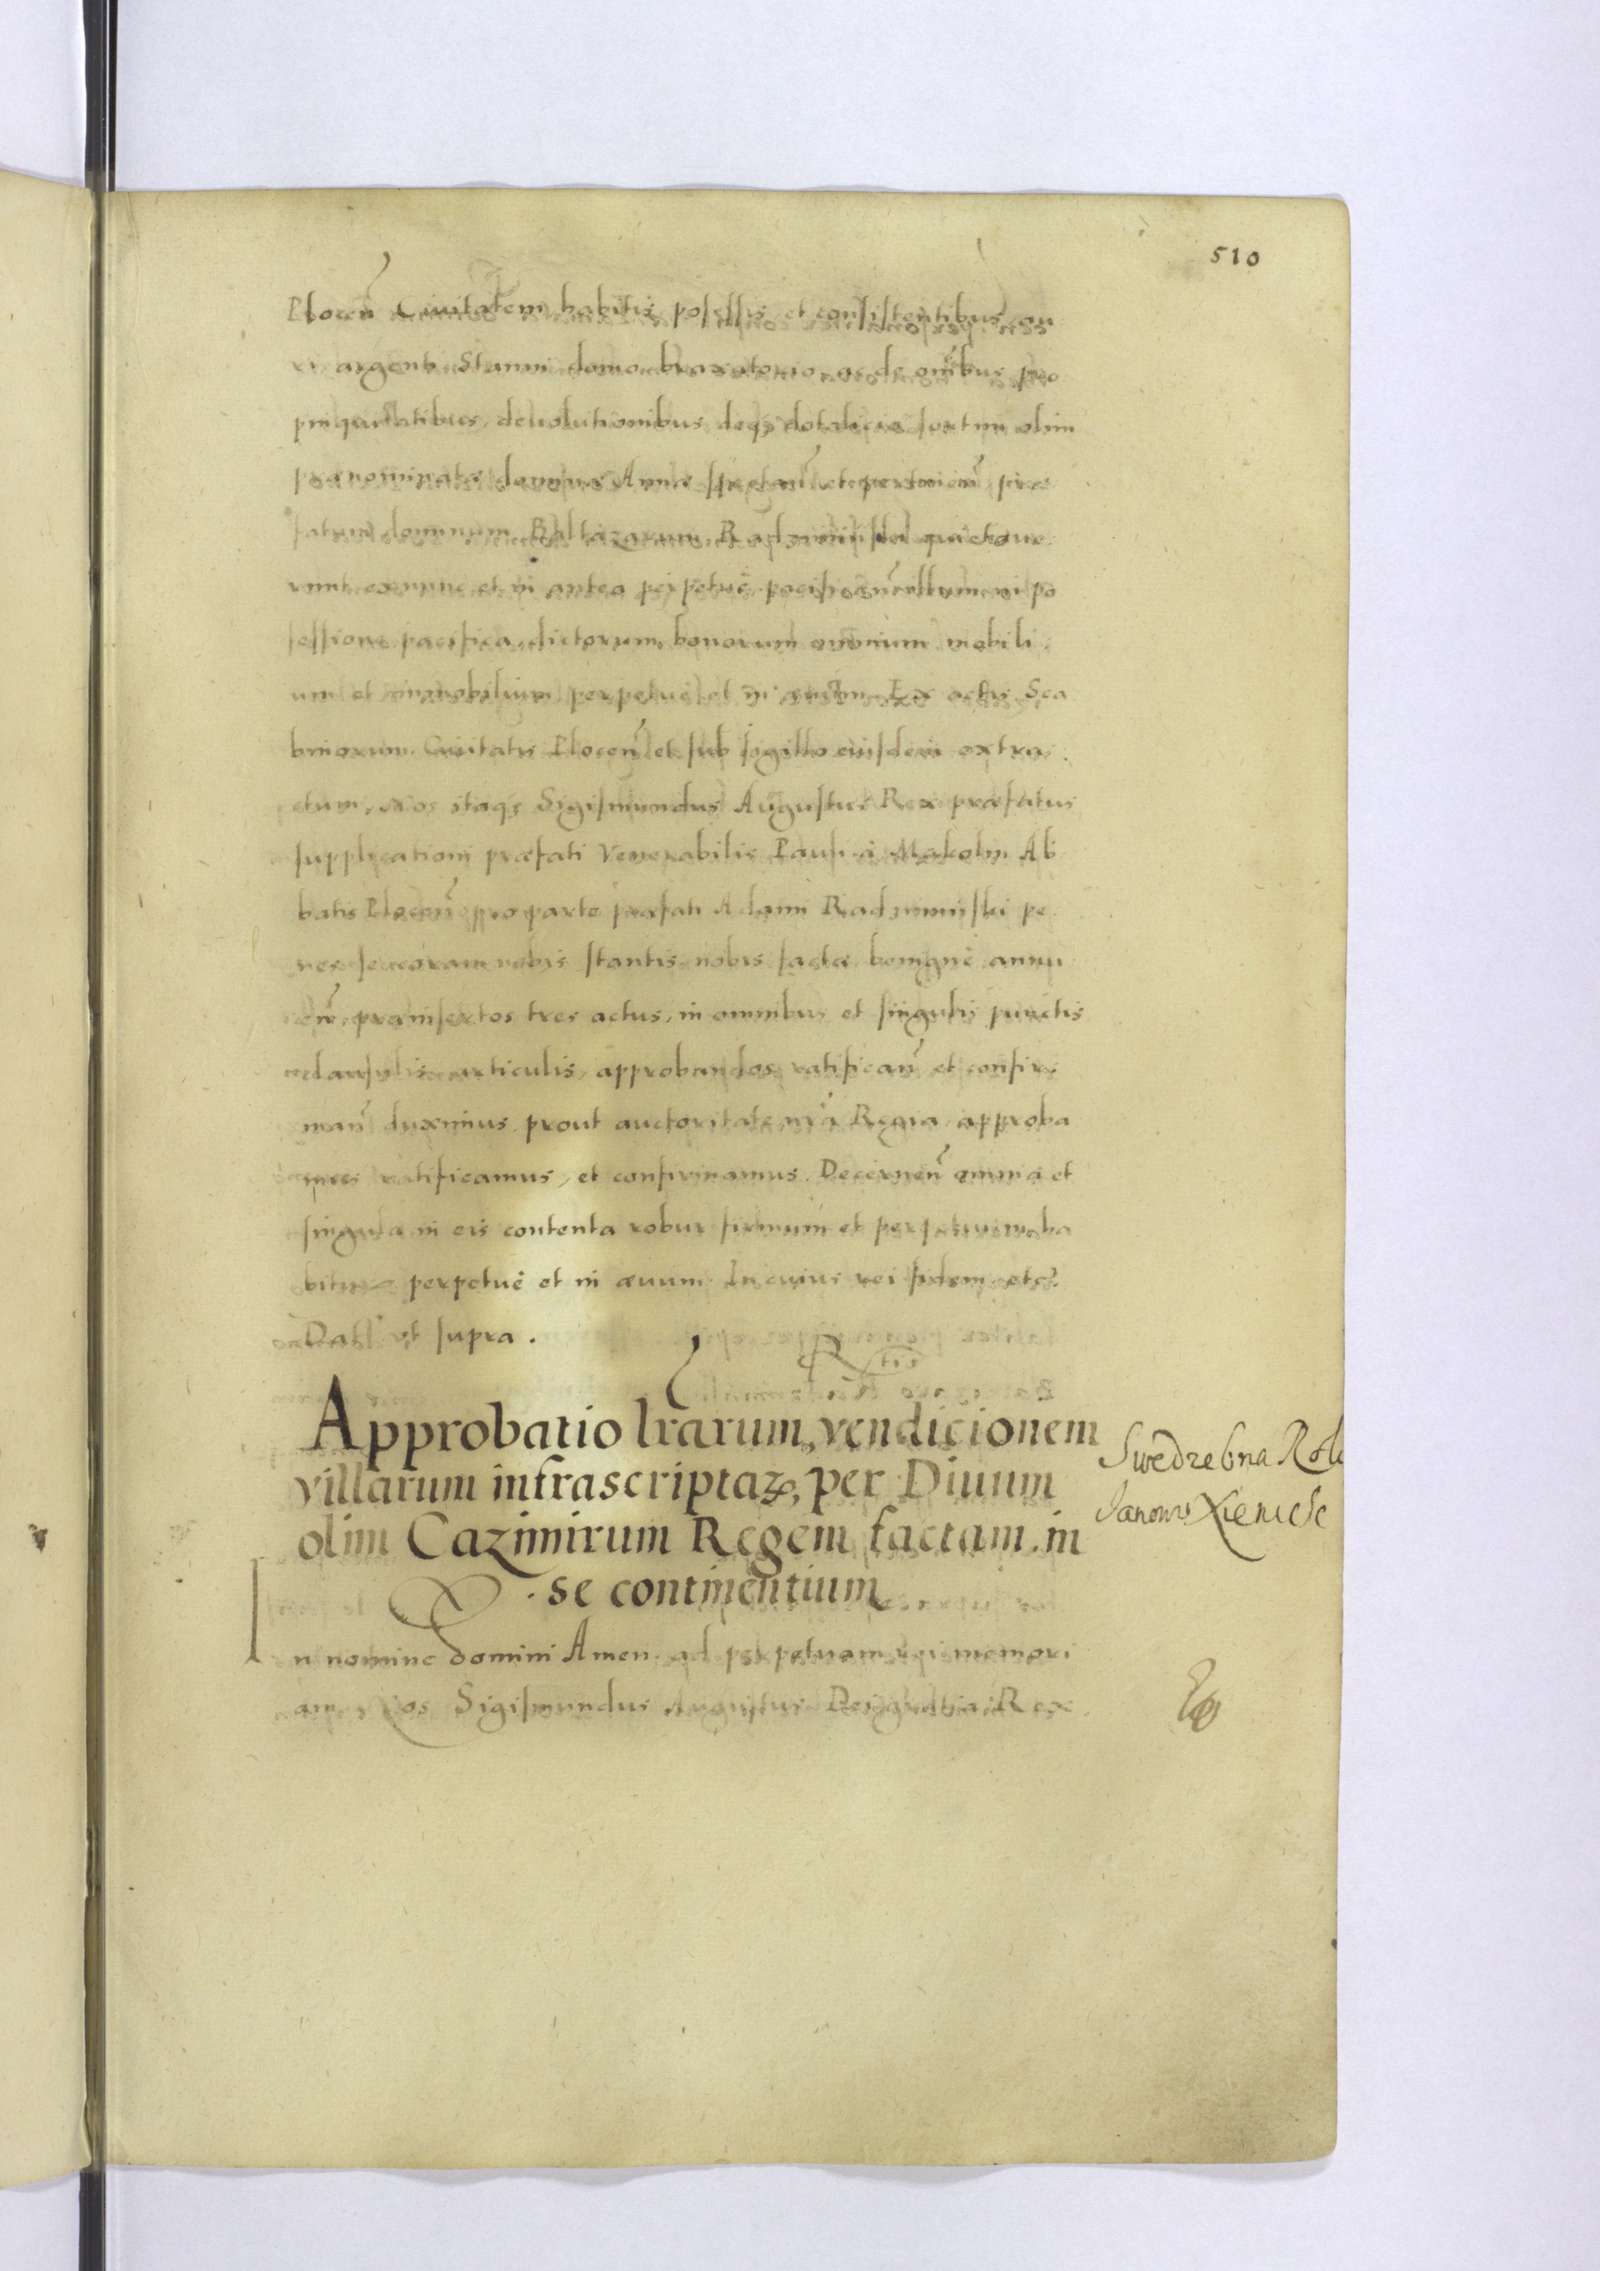 510
Plocen̄ Ciuitatem habitis posessis et consistentibus, au
ri argenti Stanni domo braxatorio ac de om̄ibus pro
pinquitatibus, deuolutionibus deq3 dotalicio sortim olim
prænominatæ dominæ Annæ spectan̄ et pertinen̄ præ
fatum dominum Baltazarum Radzimiński quietaue
runt ex nunc et in antea perpetuè pacifican̄ illum in po
sessione pacifica, dictorum bonorum omnium mobili
um et immobilium perpetuè et in æuum. Ex actis Sca
binorum Ciuitatis Plocen̄ et sub sigillo eiusdem extra
ctum, Nos itaq3 Sigismundus Augustus Rex præfatus
supplicationi præfati Venerabilis Pauli à Makolin Ab
batis Plocen̄ pro parte præfati Adami Radzimiński pe
nes se coram nobis stantis nobis factæ benignè annu
en̄, præinsertos tres actus, in omnibus et singulis punctis
clausulis articulis, approbandos ratifican̄ et confir
man̄ duximus prout auctoritate nr̄a Regia approba
mus ratificamus, et confirmamus. Decernen̄ omnia et
singula in eis contenta robur firmum et perpetuum ha
bitura perpetuè et in æuum. In cuius rei fidem etc.
Dat̄ ut supra.
Approbatio lrarum, vendicionem
villarum infrascriptaꝝ, per Diuum
olim Cazimirum Regem factam, in
se continentium
Swedrebna Role
Janowi Xieniese
In nomine Domini Amen. ad perpetuam rei memori
am Nos Sigismundus Augustus Dei gratia Rex